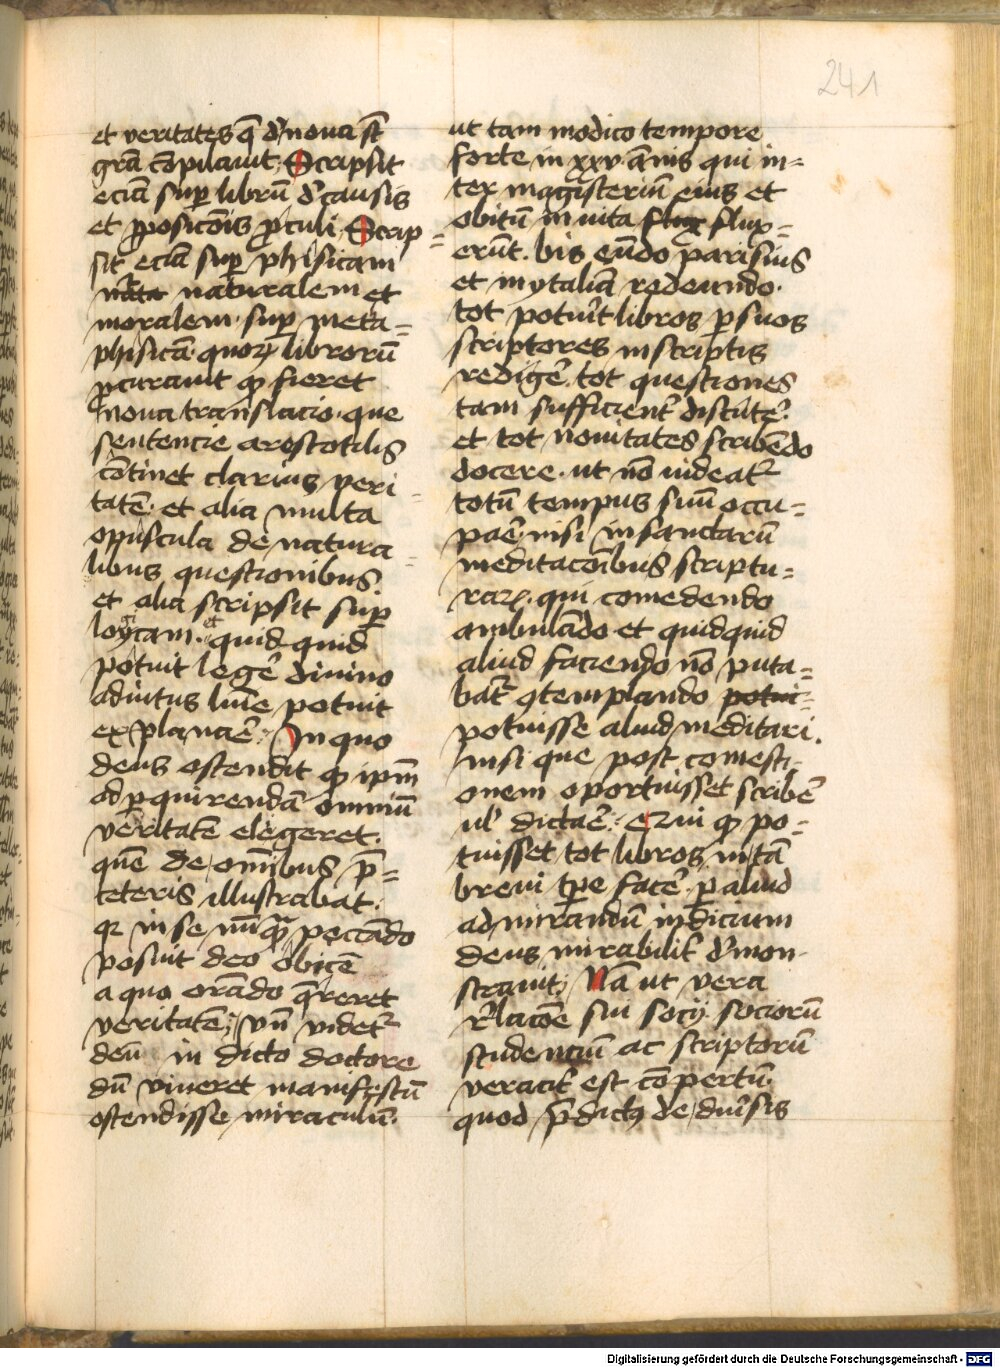 241
et veritates q̄ d' noua st̄
gr̄a cōpilauit. Scripsit
eciā sup̱ librū d' causis
et p̱posicōis p̱culi. Scrip=
sit eciā sup̱ phisicam
nāta naturalem et
moralem. sup̱ meta=
phisicā. quoꝝ librorū
p̱curauit ꝙ fieret
noua translacio. que
sentencie arestotilis
cōtinet clarius veri=
tatē. et alia multa
opuscula de natura=
libus questionibus.
et alia scripsit sup̱
loycam. et quid quid
potuit legē diuino
adiutus lūīe potuit
explanaē. In quo
deus ostendit ꝙ ip̄m
ad p̱quirendā omniū
veritatē elegeret.
quē de omībus p̄=
teteris illustrabat.
qr in se nūq̄ peccādo
posuit deo obicē
a quo orādo q̄reret
veritatē. vn̄ videt᷑
deū in dicto doctore
dū viueret manifestū
ostendisse miraculū.
ut tam modico tempore
forte in xxv ānis qui in=
tex magisteriū eius et
obitū in uita flux flux=
erūt. bis eūdo parisius
et in ytaliā redeundo.
tot potuīt libros p̱ suos
scriptores in scriptis
redigē. tot questiones
tam sufficient᷑ discutē.
et tot nouitates scribēdo
docere. ut nō uideat᷑
totū tempus suū occu=
paē. nisi in sanctarū
meditacōibus scriptu=
raꝝ. qui comedendo
ambulādo et quidquid
aliud faciendo nō puta=
bat᷑ ꝯtemplando potui=
potuisse aliud meditari.
nisi que post comesti=
onem oportuisset scribē
ul' dictaē. ezui ꝙ po=
tuisset tot libros in tā
breui tp̱e facē. p̱ aliud
admirandū indicium
deus mirabilit᷑ d'mon=
strauit. Nā ut vera
r'lacōe sui socij. sociorū
studenciū ac scriptorū
veracit᷑ est cōpertū.
quod p̄dictꝰ de diu'sis
Digitalisierung gefördert durch die Deutsche Forschungsgemeinschaft - DFG